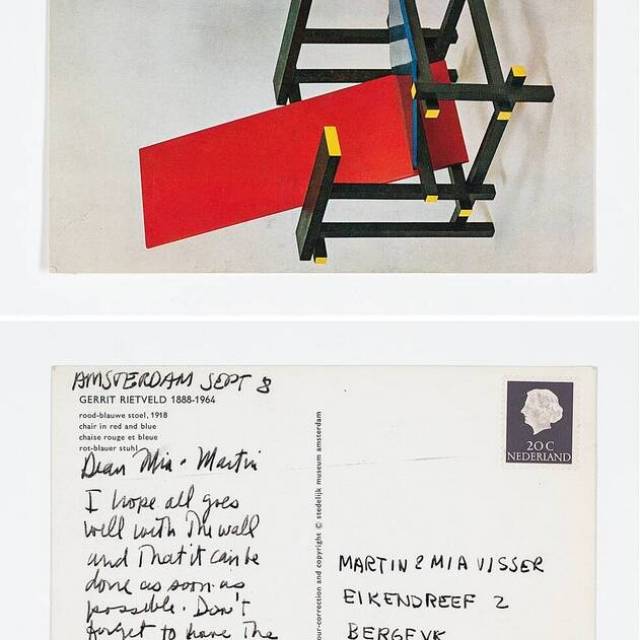 AMSTERDAM SEPT 8
GERRIT RIETVELD 1888-1964
rood-blauwe stoel, 1918
chair in red and blue
chaise rouge et bleue
rot-blauer stuhl
Dear Mia - Martin
I hope all goes
well with The wall
and That it can be
done as soon as
possible. Don't
forget to have The
our-correction and copyright © stedelijk museum amsterdam
20 C
NEDERLAND
MARTIN & MIA VISSER
EIKENDREEF 2
BERGEYK